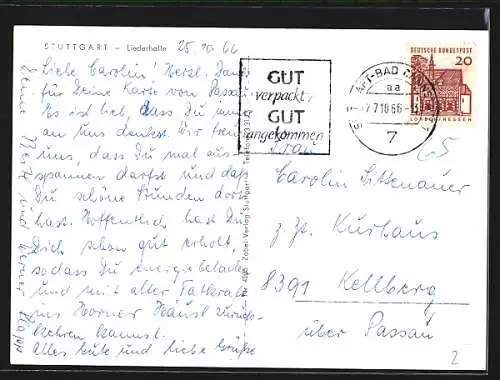 STUTTGART – Liederhalle 25.10.66
Liebe Carolin! Herzl. Dank
für Deine Karte von Passau.
Es ist lieb, dass Du an
an uns denkst. Wir freuen
uns, dass Du mal aus-
spannen darfst und daß
Du schöne Freunden dort
hast. Hoffentlich hast Du
Dich schon gut erholt,
sodass Du energiegeladen
und mit alter Tatkraft
ins Horner Häusl zurück-
kehren kannst.
Alles Gute und liebe Grüße
Deine und Werner
Zobel-Verlag Stuttgart Telefon
GUT
verpackt
GUT
angekommen
DEUTSCHE BUNDESPOST
20
LORSCH/HESSEN
STUTTGART-BAD CANNSTATT
aa
27.10.66
7
Frau
Carolin Sittenauer
z. Zt. Kurhaus
8391 Kellberg
über Passau
65
2